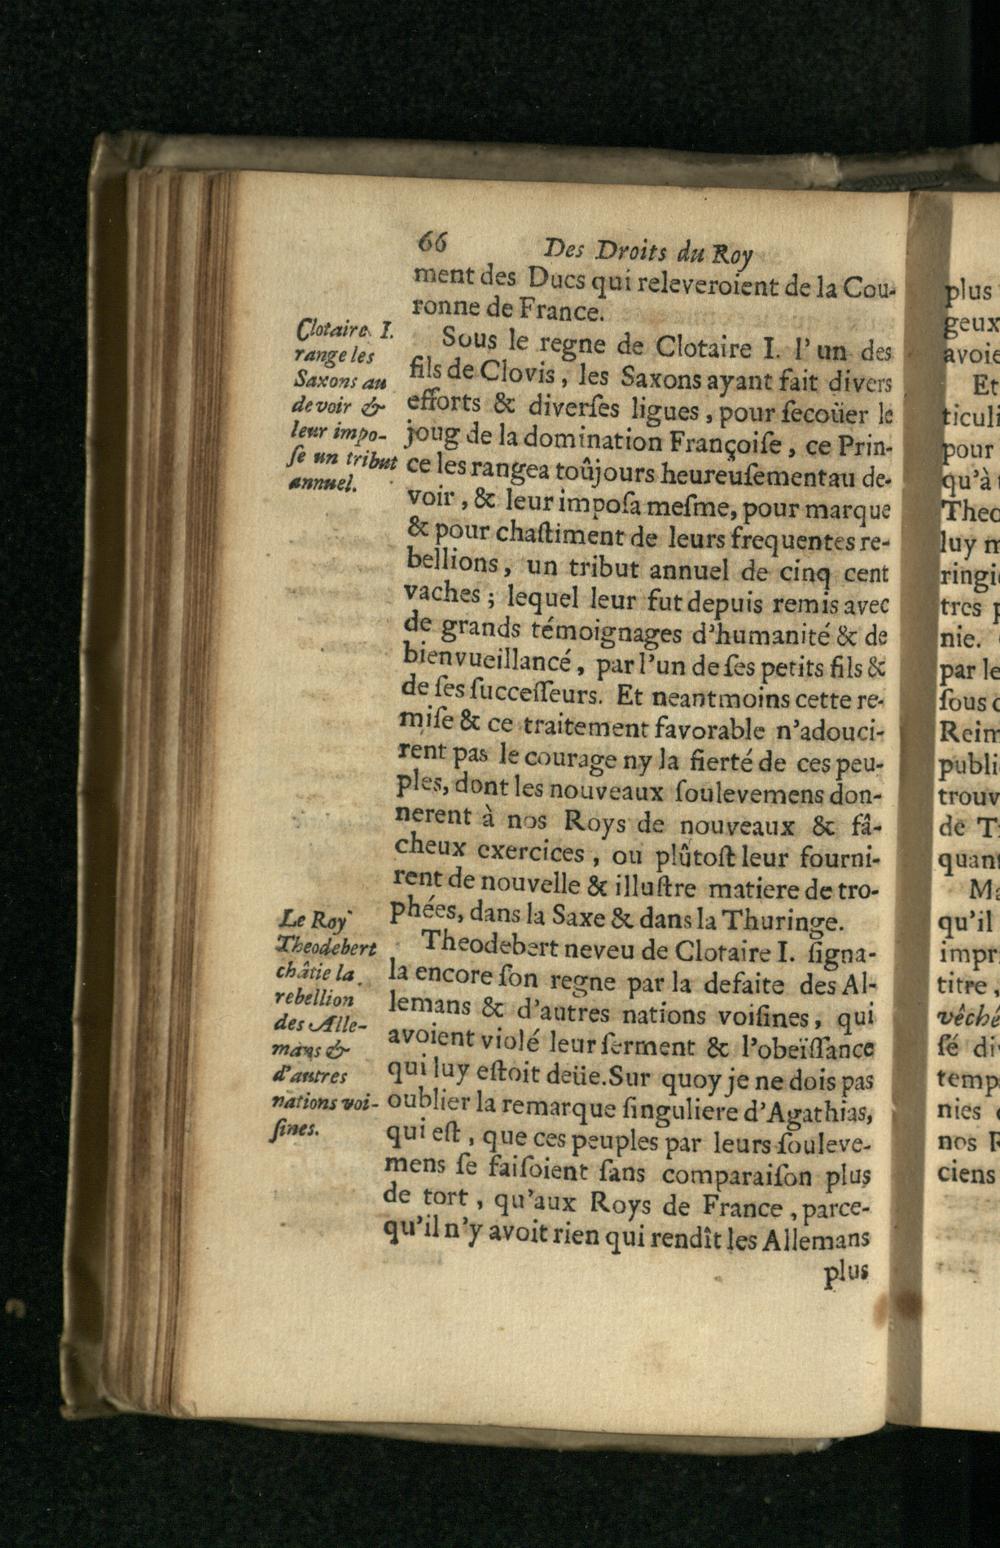 66 Des Droits du Roy
ment des Ducs qui releveroient de la Cou-
ronne de France.
Clotaire I.
range les
Saxons au
devoir &
leur impo-
ſe un tribut
annuel.
Sous le regne de Clotaire I. l'un des
fils de Clovis, les Saxons ayant fait divers
efforts & diverſes ligues, pour ſecoüer le
joug de la domination Françoiſe, ce Prin-
ce les rangea toûjours heureuſement au de-
voir, & leur impoſa meſme, pour marque
& pour chaſtiment de leurs frequentes re-
bellions, un tribut annuel de cinq cent
vaches; lequel leur fut depuis remis avec
de grands témoignages d'humanité & de
bienvueillancé, par l'un de ſes petits fils &
de ſes ſucceſſeurs. Et neantmoins cette re-
miſe & ce traitement favorable n'adouci-
rent pas le courage ny la fierté de ces peu-
ples, dont les nouveaux ſoulevemens don-
nerent à nos Roys de nouveaux & fâ-
cheux exercices, ou plûtoſt leur fourni-
rent de nouvelle & illuſtre matiere de tro-
phées, dans la Saxe & dans la Thuringe.
Le Roy
Theodebert
châtie la
rebellion
des Alle-
mans &
d'autres
nations voi-
ſines.
Theodebert neveu de Clotaire I. ſigna-
la encore ſon regne par la defaite des Al-
lemans & d'autres nations voiſines, qui
avoient violé leur ſerment & l'obeïſſance
qui luy eſtoit deüe. Sur quoy je ne dois pas
oublier la remarque ſinguliere d'Agathias,
qui eſt, que ces peuples par leurs ſouleve-
mens ſe faiſoient ſans comparaiſon plus
de tort, qu'aux Roys de France, parce-
qu'il n'y avoit rien qui rendît les Allemans
plus
plus
geux
avoie
Et
ticuli
pour
qu'à
Theo
luy
ringi
tres
nie.
par le
ſous
Reim
publi
trouv
de
quant
qu'il
impr
titre,
vêché
ſé di
temp
nies
nos
ciens